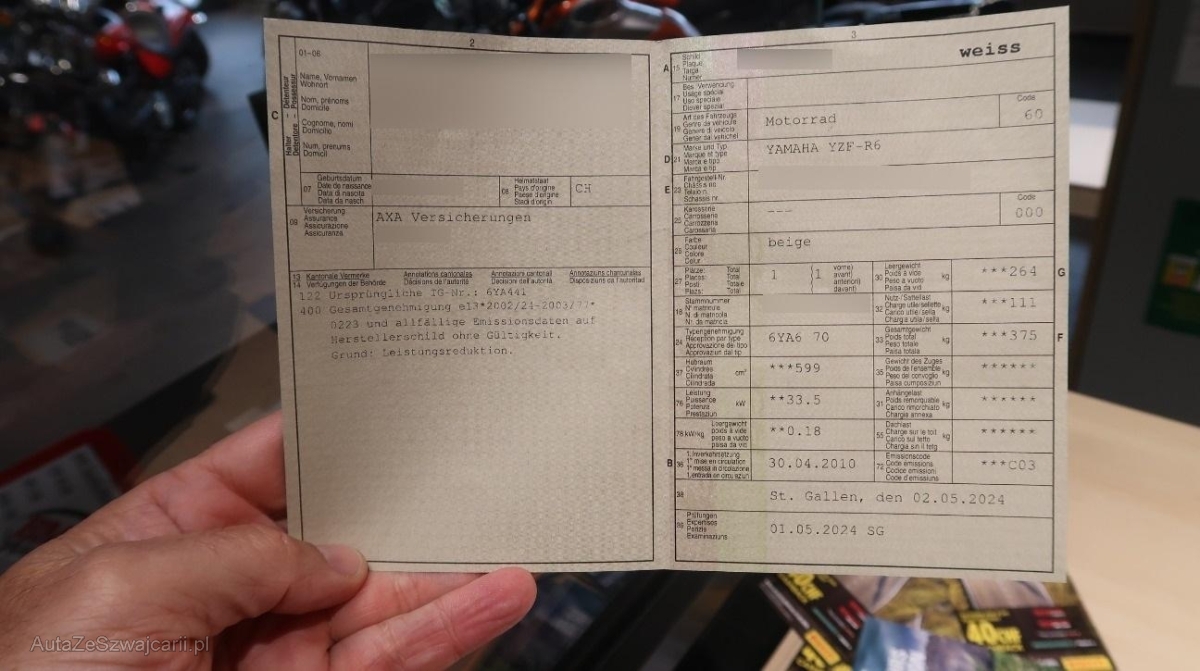 2
01-06
C
Halter - Détenteur
Detentore - Possessur
Name, Vornamen
Wohnort
Nom, prénoms
Domicile
Cognome, nomi
Domicilio
Num, prenums
Domicil
07
Geburtsdatum
Date de naissance
Data di nascita
Data da nasch.
08
Heimatstaat
Pays d'origine
Paese d'origine
Stadi d'origin
CH
09
Versicherung
Assurance
Assicurazione
Assicuranza
AXA Versicherungen
13 Kantonale Vermerke Annotations cantonales Annotazioni cantonali Annotaziuns chantunalas
14 Verfügungen der Behörde Décisions de l'autorité Decisioni dell'autorità Disposiziuns da l'autoritad
122 Ursprüngliche TG-Nr.: 6YA441
400 Gesamtgenehmigung e13*2002/24-2003/77*
0223 und allfällige Emissionsdaten auf
Herstellerschild ohne Gültigkeit.
Grund: Leistungsreduktion.
3
weiss
A 15
Schild
Plaque
Targa
Numer
17
Bes. Verwendung
Usage spécial
Uso speciale
Diever spezial
19
Art des Fahrzeugs
Genre de véhicule
Genere di veicolo
Gener dal vehichel
Motorrad
Code
60
D 21
Marke und Typ
Marque et type
Marca e tipo
Marca e tip
YAMAHA YZF-R6
E 23
Fahrgestell-Nr.
Châssis no
Telaio n.
Schassis nr.
25
Karosserie
Carrosserie
Carrozzeria
Carossaria
---
Code
000
26
Farbe
Couleur
Colore
Colur
beige
27
Plätze: Total
Places: Total
Posti: Totale
Plazs: Total
1 (1
vorne)
avant)
anteriori)
davant)
30
Leergewicht
Poids à vide
Peso a vuoto
Paisa da vid
kg
***264
G
18
Stammnummer
N° matricule
N. di matricola
Nr. da matricla
32
Nutz-/Sattellast
Charge utile/sellette
Carico utile/sella
Chargia utila/sella
kg
***111
24
Typengenehmigung
Réception par type
Approvazione del tipo
Approvaziun dal tip
6YA6 70
33
Gesamtgewicht
Poids total
Peso totale
Paisa totala
kg
***375
F
37
Hubraum
Cylindrée
Cilindrata
Cilindrada
cm³
***599
35
Gewicht des Zuges
Poids de l'ensemble
Peso del convoglio
Paisa cumposiziun
kg
******
76
Leistung
Puissance
Potenza
Prestaziun
kW
**33.5
31
Anhängelast
Poids remorquable
Carico rimorchiato
Chargia annexa
kg
******
78 kW/kg
Leergewicht
poids à vide
peso a vuoto
paisa da vid
**0.18
55
Dachlast
Charge sur le toit
Carico sul tetto
Chargia sin il tetg
kg
******
B 36
1. Inverkehrsetzung
1re mise en circulation
1a messa in circolazione
1. entrada en circulaziun
30.04.2010
72
Emissionscode
Code émissions
Codice emissioni
Code d'emissiuns
***C03
38
St. Gallen, den 02.05.2024
39
Prüfungen
Expertises
Perizie
Examinaziuns
01.05.2024 SG
40CHF
AutaZeSzwajcarii.pl